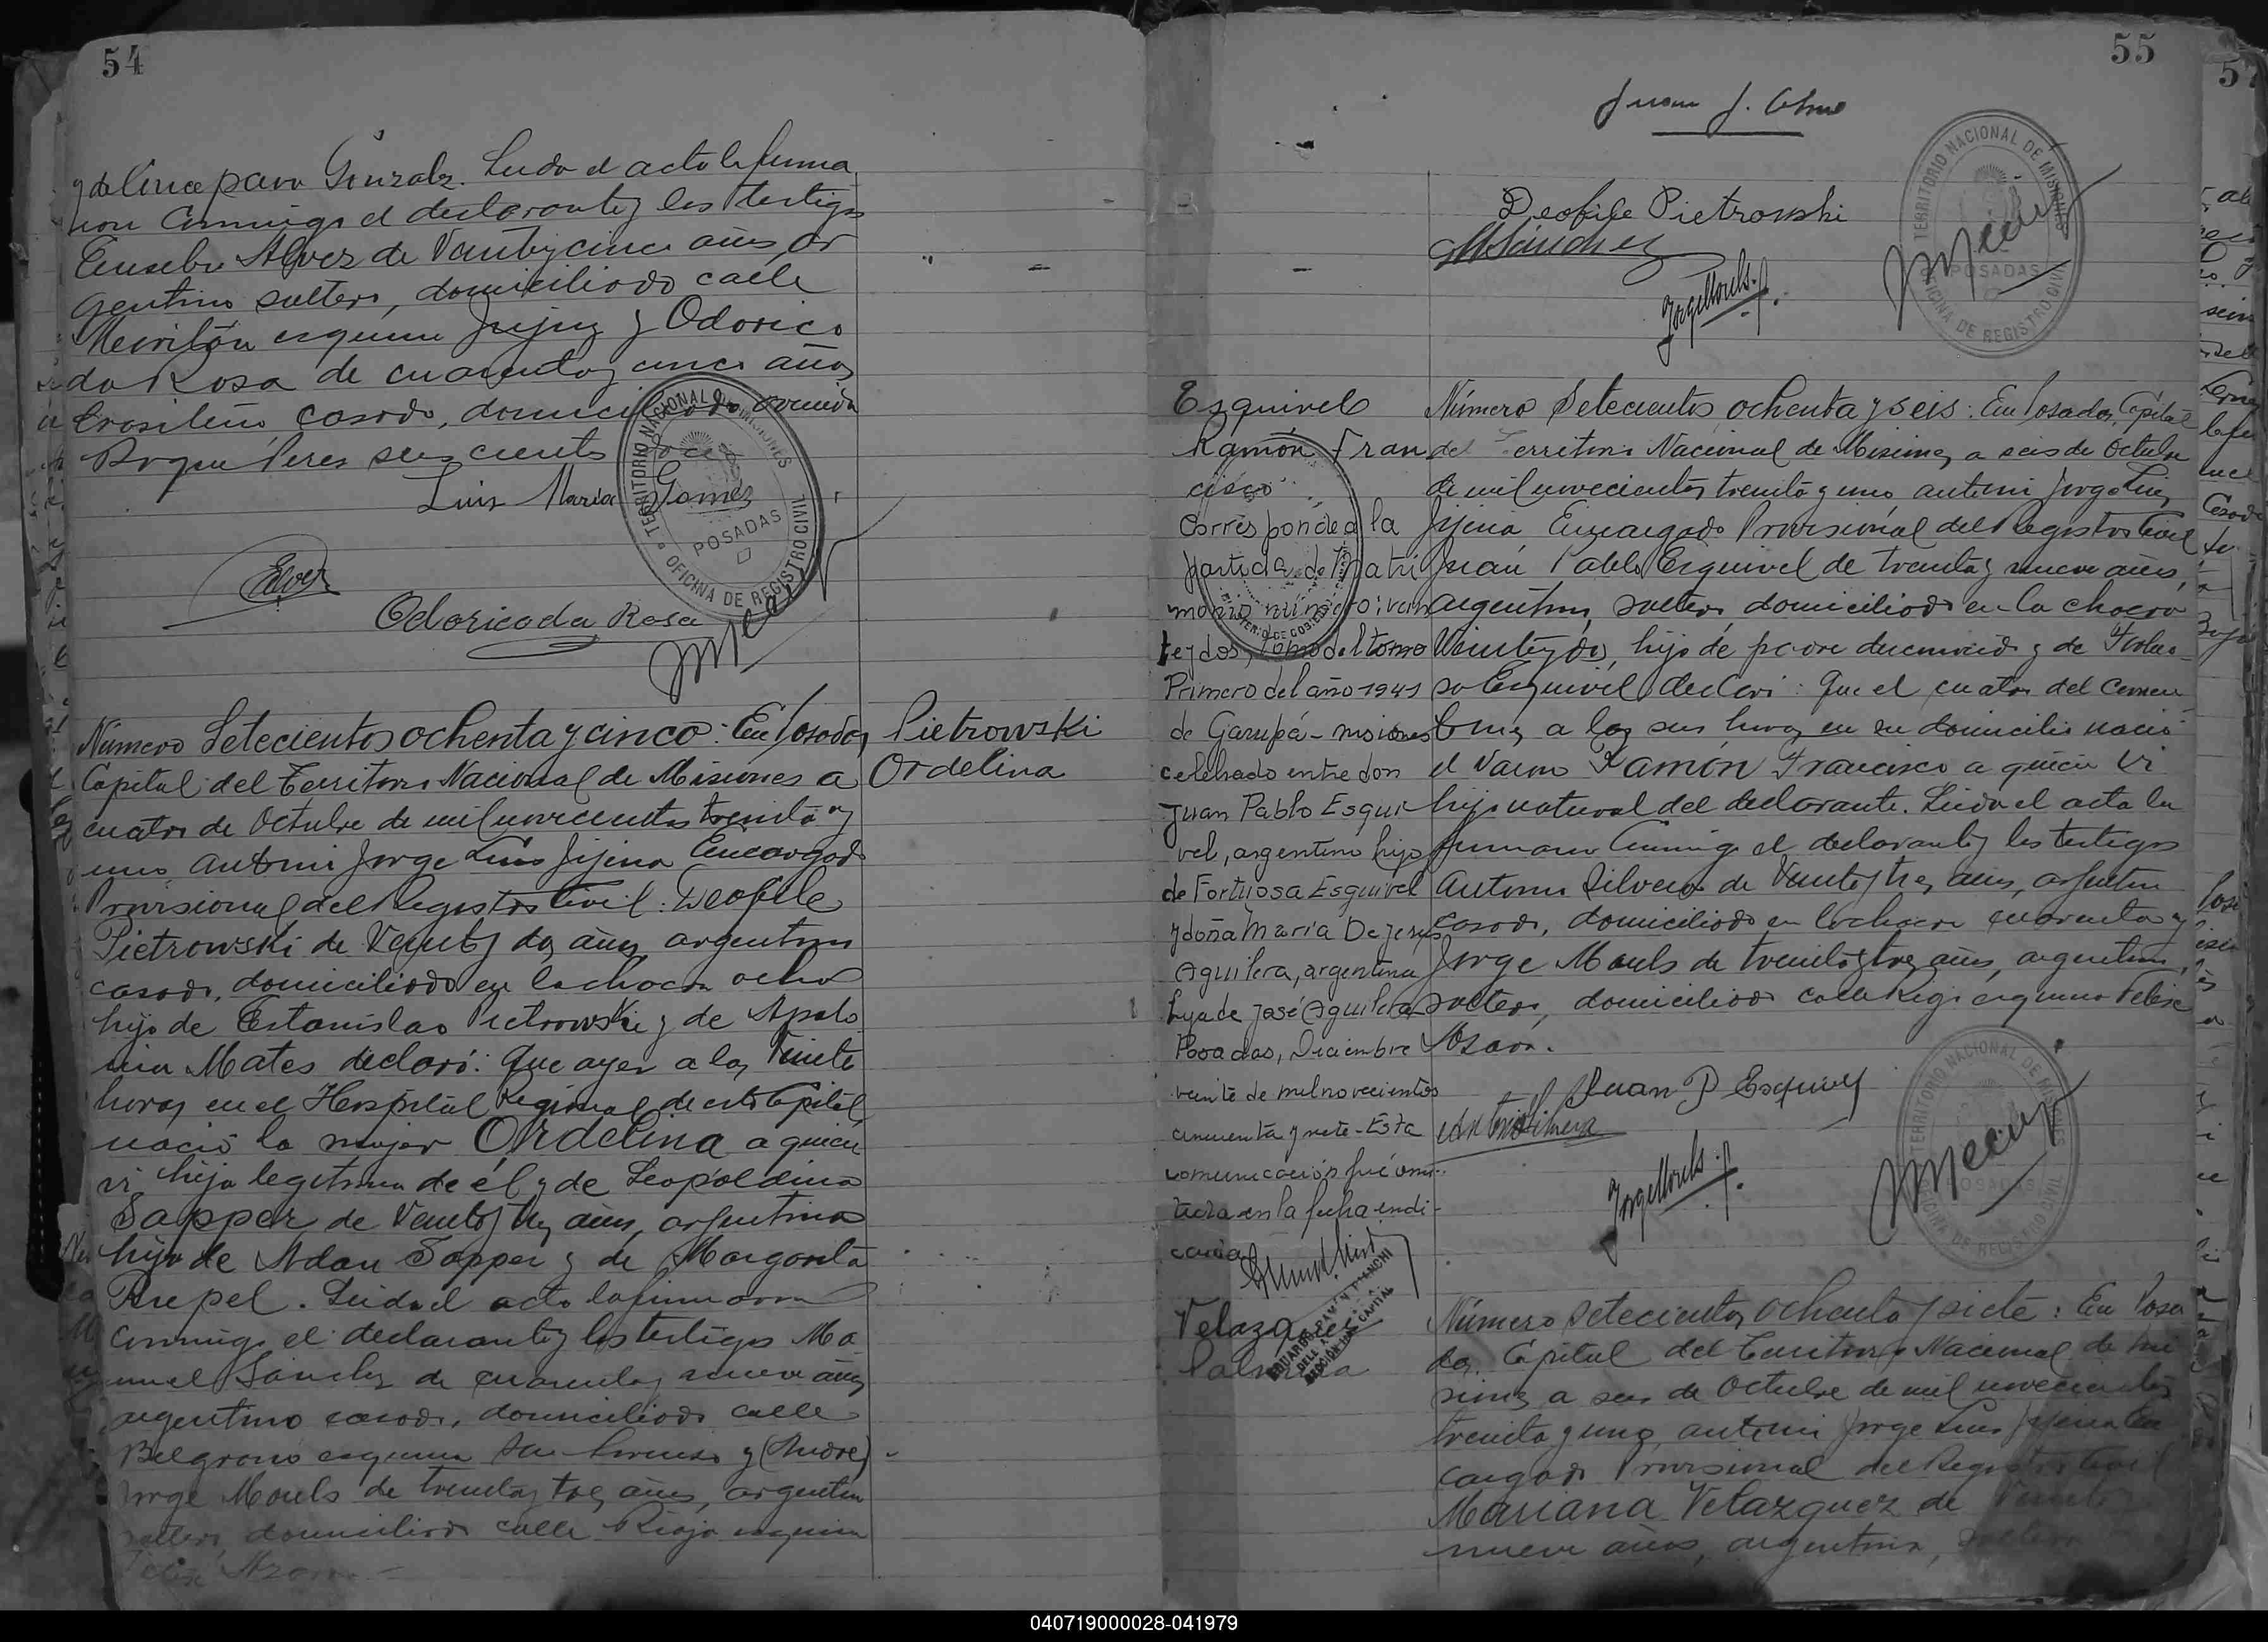 54
Gonzalez. Leida el acta la firma
ron conmigo el declarante y los testigos
Eusebio Alvez de veinticinco años, ar
gentino soltero, domiciliado calle
esquina Jujuy y Odorico
da Rosa de cuarenta y cinco años
brasileño, casado, domiciliado avenida
Roque Perez seis cientos doce
Luis Maria Gomez
Odorico da Rosa
TERRITORIO NACIONAL DE MISIONES
POSADAS
OFICINA DE REGISTRO CIVIL
Pietrowski
Ordelina
Número Setecientos ochenta y cinco: En Posadas,
Capital del Territorio Nacional de Misiones a
cuatro de Octubre de mil novecientos treinta y
uno, ante mi Jorge Luis Jijena Encargado
Provisional del Registro Civil: Deofile
Pietrowski de veinty dos años, argentino
casado, domiciliado en la chacra ocho
hijo de Estanislao Pietrowski y de Apolo
nia Mates declaró: Que ayer a las veinte
horas en el Hospital Regional de esta Capital
nació la mujer Ordelina a quien
vi hija legitima de él y de Leopoldina
Sapper de veinty tres años, argentina
hija de Adan Sapper y de Margarita
Repel. Leida el acta la firmaron
conmigo el declarante y los testigos Ma
nuel Sanchez de cuarenta y nueve años
argentino casado, domiciliado calle
Belgrano esquina San Lorenzo y
Jorge Mouls de treinta y tres años, argentino
soltero, domiciliado calle Rioja esquina
Felix Azara
55
Deofile Pietrowski
TERRITORIO NACIONAL DE MISIONES
POSADAS
OFICINA DE REGISTRO CIVIL
Esquivel
Ramón Fran
cisco
Corresponde a la
partida de matri
monio número: vein
te y dos, tomo del tomo
Primero del año 1941
de Garupá - Misiones
celebrado entre don
Juan Pablo Esqui
vel, argentino hijo
de Fortuosa Esquivel
y doña Maria De Jesus
Aguilera, argentina
hija de José Aguilera
Posadas, Diciembre
veinte de mil novecientos
cincuenta y siete - Esta
comunicación fué omi
tida en la fecha indi-
cada
Número Setecientos ochenta y seis: En Posadas, Capital
del Territorio Nacional de Misiones, a seis de Octubre
de mil novecientos treinta y uno, ante mi Jorge Luis
Jijena Encargado Provisional del Registro Civil
Juan Pablo Esquivel de treinta y nueve años,
argentino, soltero, domiciliado en la chacra
veinty dos, hijo de padre desconocido y de
Esquivel declaró: Que el cuatro del corrien
te mes a las seis horas en su domicilio nació
el varon Ramón Francisco a quien vi
hijo natural del declarante. Leida el acta la
firmaron conmigo el declarante y los testigos
Antonio Silvera de veinty tres años, argentino
casado, domiciliado en la chacra cuarenta y
Jorge Mouls de treinta y tres años, argentino,
soltero, domiciliado calle Rioja esquina Felix
Azara.
Juan P Esquivel
Antonio Silvera
TERRITORIO NACIONAL DE MISIONES
POSADAS
OFICINA DE REGISTRO CIVIL
Velazquez
Número Setecientos ochenta y siete: En Posa
das, Capital del Territorio Nacional de Mi
siones a seis de Octubre de mil novecientos
treinta y uno, ante mi Jorge Luis Jijena En
cargado Provisional del Registro Civil
Mariana Velazquez de veinty
nueve años, argentina, soltera
040719000028-041979